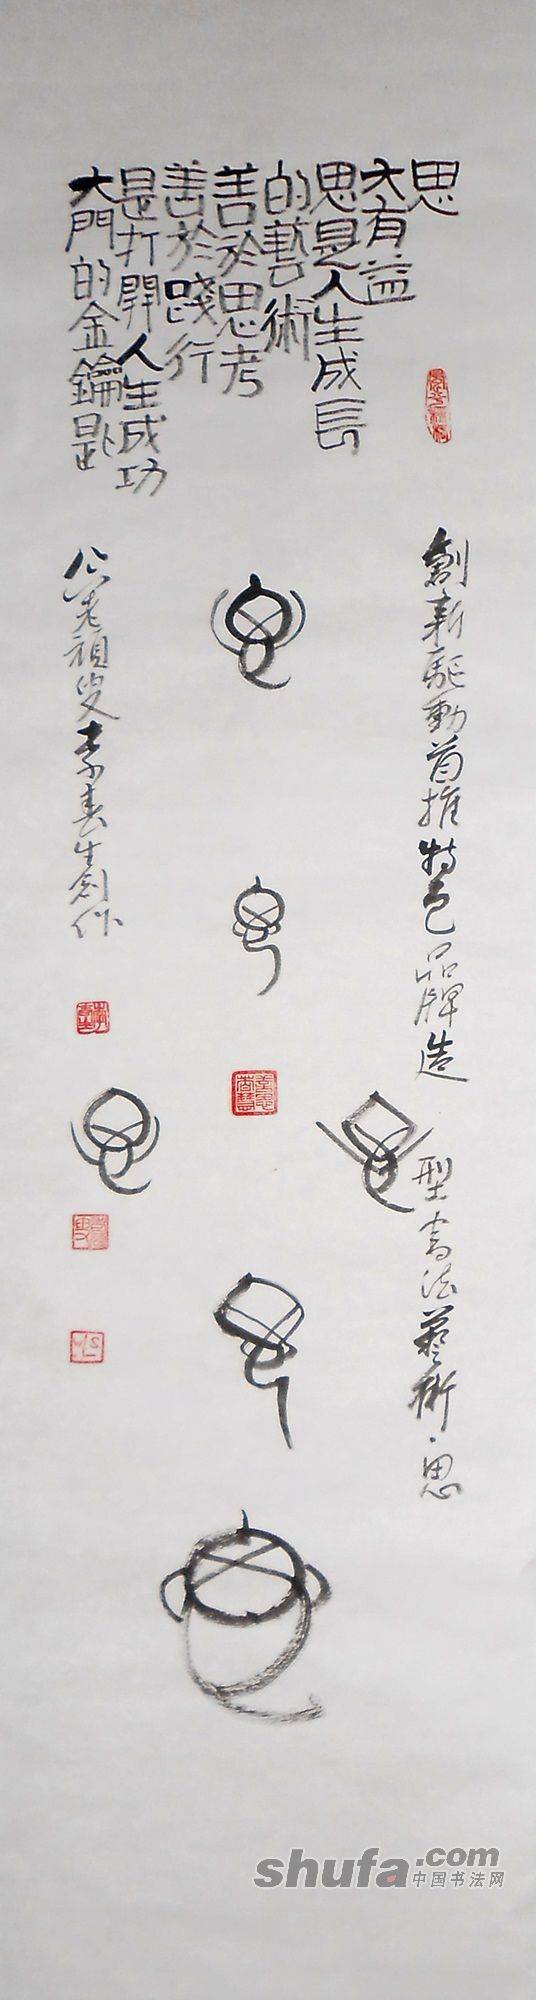 思
大有益
思是人生成長
的藝術
善於思考
善於踐行
是打開人生成功
大門的金鑰匙
創新駆動首推特色品牌造型書法藝術·思
老頑叟李春生創作
shufa.com
中国书法网